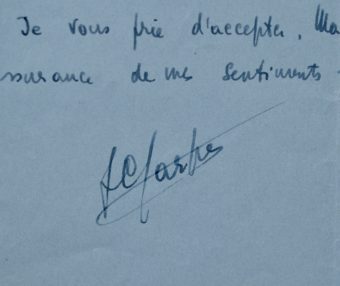 Je vous prie d'accepter, Ma
ssurance de mes sentiments